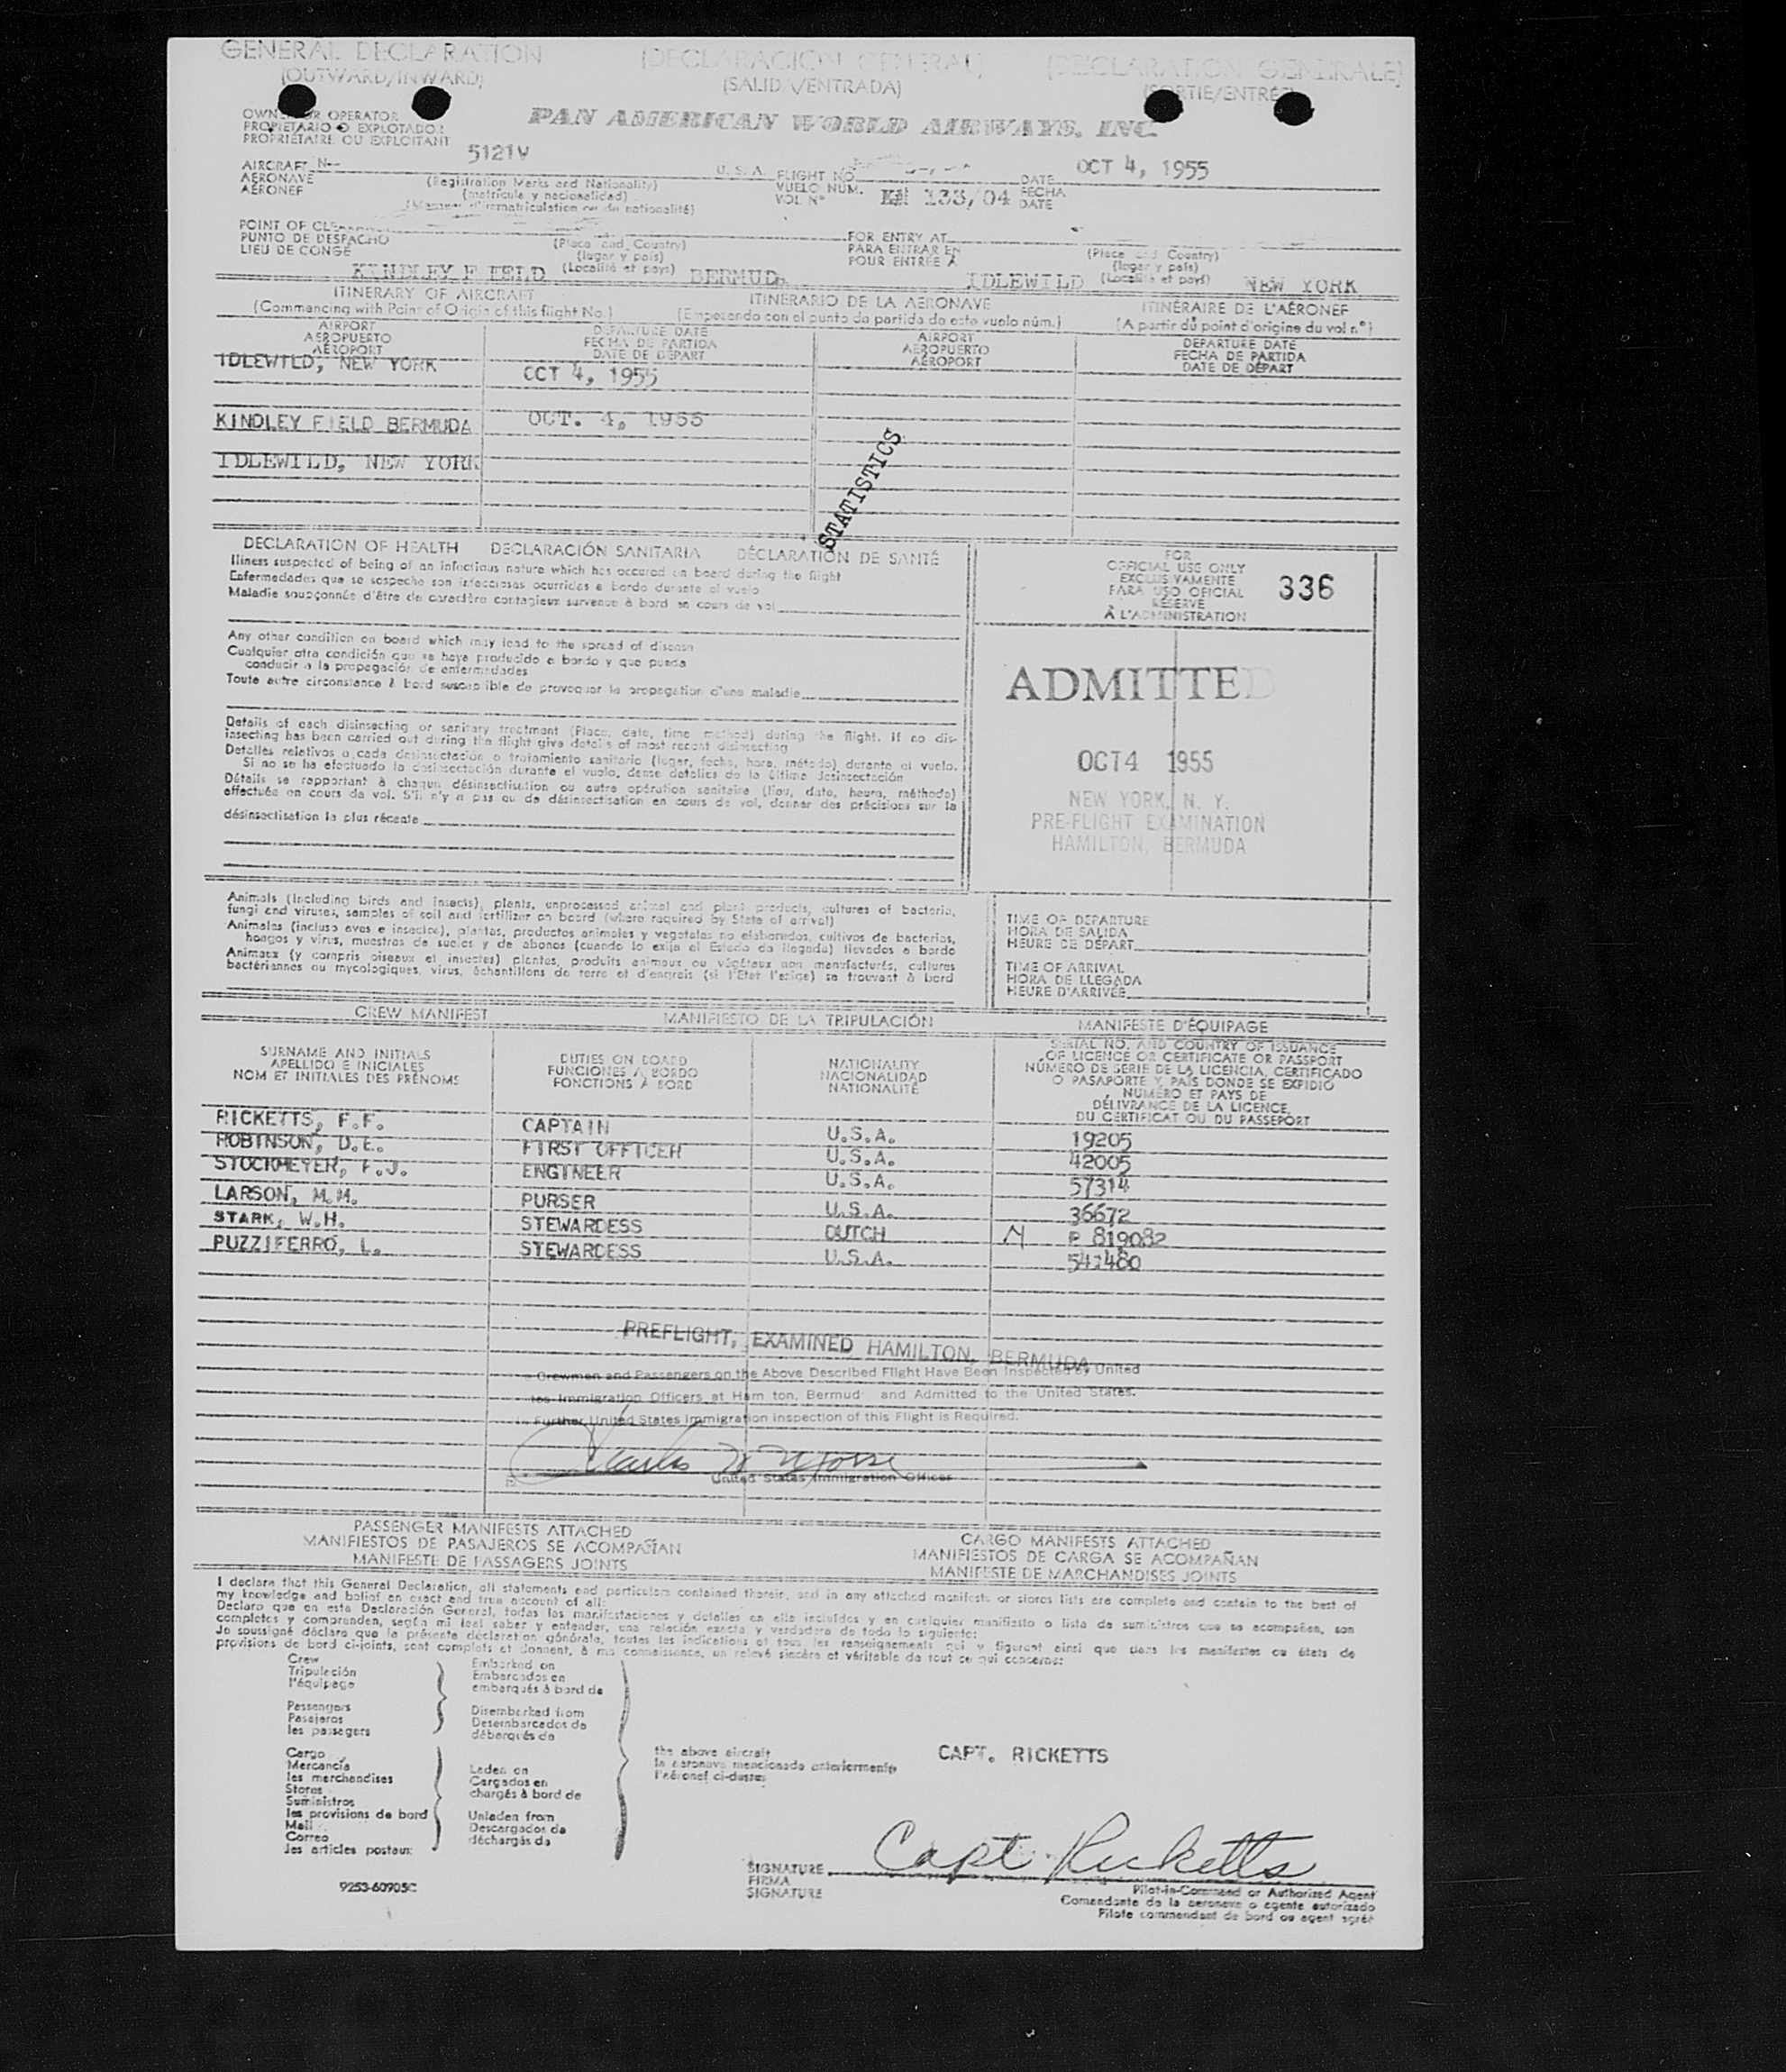 GENERAL DECLARATION
(OUTWARD/INWARD)
(DECLARACIÓN GENERAL)
(SALIDA/ENTRADA)
(DECLARATION GENERALE)
(SORTIE/ENTRÉE)
OWNER OR OPERATOR
PROPIETARIO O EXPLOTADOR
PROPRIÉTAIRE OU EXPLOITANT
PAN AMERICAN WORLD AIRWAYS, INC
AIRCRAFT N- 5121V U. S. A.
AERONAVE
AÉRONEF
(Registration Marks and Nationality)
(matrícula y nacionalidad)
FLIGHT NO.
VUELO NÚM. 133/04
VOL N°
DATE OCT 4, 1955
FECHA
DATE
POINT OF
PUNTO DE DESPACHO
LIEU DE CONGÉ
(Place and Country)
(lugar y país)
(Localité et pays)
KINDLEY FIELD BERMUDA
FOR ENTRY AT
PARA ENTRAR EN
POUR ENTRÉE À
(Place and Country)
(lugar y país)
(Localité et pays)
IDLEWILD NEW YORK
ITINERARY OF AIRCRAFT ITINERARIO DE LA AERONAVE ITINÉRAIRE DE L'AÉRONEF
(Commencing with Point of Origin of this flight No.) (Empezando con el punto de partida de este vuelo núm.) (A partir du point d'origine du vol n°)
AIRPORT
AEROPUERTO
AÉROPORT
DEPARTURE DATE
FECHA DE PARTIDA
DATE DE DÉPART
AIRPORT
AEROPUERTO
AÉROPORT
DEPARTURE DATE
FECHA DE PARTIDA
DATE DE DÉPART
IDLEWILD, NEW YORK OCT 4, 1955
KINDLEY FIELD BERMUDA OCT. 4, 1955
IDLEWILD, NEW YORK
STATISTICS
DECLARATION OF HEALTH DECLARACIÓN SANITARIA DÉCLARATION DE SANTÉ
Illness suspected of being of an infectious nature which has occured on board during the flight
Enfermedades que se sospeche son infecciosas ocurridas a bordo durante el vuelo
Maladie soupçonnée d'être de caractère contagieux survenue à bord en cours de vol
Any other condition on board which may lead to the spread of disease
Cualquier otra condición que se haya producido a bordo y que pueda
conducir a la propagación de enfermedades
Toute autre circonstance à bord susceptible de provoquer la propagation d'une maladie
Details of each disinsecting or sanitary treatment (Place, date, time method) during the flight. If no dis-
insecting has been carried out during the flight give details of most recent disinsecting
Detalles relativos a cada desinsectación o tratamiento sanitario (lugar, fecha, hora, método) durante el vuelo.
Si no se ha efectuado la desinsectación durante el vuelo, dense detalles de la última desinsectación
Détails se rapportant à chaque désinsectisation ou autre opération sanitaire (lieu, date, heure, méthode)
effectuée en cours de vol. S'il n'y a pas eu de désinsectisation en cours de vol, donner des précisions sur la
désinsectisation la plus récente
FOR
OFFICIAL USE ONLY
EXCLUSIVAMENTE
PARA USO OFICIAL
RÉSERVÉ
À L'ADMINISTRATION
336
ADMITTED
OCT 4 1955
NEW YORK, N. Y.
PRE-FLIGHT EXAMINATION
HAMILTON, BERMUDA
Animals (Including birds and insects), plants, unprocessed animal and plant products, cultures of bacteria,
fungi and viruses, samples of soil and fertilizer on board (where required by State of arrival)
Animales (incluso aves e insectos), plantas, productos animales y vegetales no elaborados, cultivos de bacterias,
hongos y virus, muestras de suelos y de abonos (cuando lo exija el Estado de llegada) llevados a bordo
Animaux (y compris oiseaux et insectes) plantes, produits animaux ou végétaux non manufacturés, cultures
bactériennes ou mycologiques, virus, échantillons de terre et d'engrais (si l'État l'exige) se trouvant à bord
TIME OF DEPARTURE
HORA DE SALIDA
HEURE DE DÉPART
TIME OF ARRIVAL
HORA DE LLEGADA
HEURE D'ARRIVÉE
CREW MANIFEST MANIFIESTO DE LA TRIPULACIÓN MANIFESTE D'ÉQUIPAGE
SURNAME AND INITIALS
APELLIDO E INICIALES
NOM ET INITIALES DES PRÉNOMS
DUTIES ON BOARD
FUNCIONES A BORDO
FONCTIONS À BORD
NATIONALITY
NACIONALIDAD
NATIONALITÉ
SERIAL NO. AND COUNTRY OF ISSUANCE
OF LICENCE OR CERTIFICATE OR PASSPORT
NÚMERO DE SERIE DE LA LICENCIA, CERTIFICADO
O PASAPORTE Y PAÍS DONDE SE EXPIDIÓ
NUMÉRO ET PAYS DE
DÉLIVRANCE DE LA LICENCE,
DU CERTIFICAT OU DU PASSEPORT
RICKETTS, F.F. CAPTAIN U.S.A. 19205
ROBINSON, D.E. FIRST OFFICER U.S.A. 42005
STOCKMEYER, F.J. ENGINEER U.S.A. 57314
LARSON, M.M. PURSER U.S.A. 36672
STARK, W.H. STEWARDESS DUTCH N P 819082
PUZZIFERRO, L. STEWARDESS U.S.A. 541480
PREFLIGHT, EXAMINED HAMILTON, BERMUDA
Crewmen and Passengers on the Above Described Flight Have Been Inspected by United
Immigration Officers at Hamilton, Bermuda and Admitted to the United States.
Further United States Immigration inspection of this Flight is Required.
United States Immigration Officer
PASSENGER MANIFESTS ATTACHED
MANIFIESTOS DE PASAJEROS SE ACOMPAÑAN
MANIFESTE DE PASSAGERS JOINTS
CARGO MANIFESTS ATTACHED
MANIFIESTOS DE CARGA SE ACOMPAÑAN
MANIFESTE DE MARCHANDISES JOINTS
I declare that this General Declaration, all statements and particulars contained therein, and in any attached manifests or stores lists are complete and contain to the best of
my knowledge and belief an exact and true account of all:
Declaro que en esta Declaración General, todas las manifestaciones y detalles en ella incluidos y en cualquier manifiesto o lista de suministros que se acompañen, son
completos y comprenden, según mi leal saber y entender, una relación exacta y verdadera de todo lo siguiente:
Je soussigné déclare que la présente déclaration générale, toutes les indications et tous les renseignements qui y figurent ainsi que dans les manifestes ou états de
provisions de bord ci-joints, sont complets et donnent, à ma connaissance, un relevé sincère et véritable de tout ce qui concerne:
Crew
Tripulación
l'équipage
Passengers
Pasajeros
les passagers
Embarked on
Embarcados en
embarqués à bord de
Disembarked from
Desembarcados de
débarqués de
Cargo
Mercancía
les marchandises
Stores
Suministros
les provisions de bord
Mail
Correo
les articles postaux
Laden on
Cargados en
chargés à bord de
Unladen from
Descargados de
déchargés de
the above aircraft
la aeronave mencionada anteriormente
l'aéronef ci-dessus
CAPT. RICKETTS
SIGNATURE Capt. Ricketts
FIRMA
SIGNATURE
Pilot-in-Command or Authorized Agent
Comandante de la aeronave o agente autorizado
Pilote commandant de bord ou agent agréé
9253-60905C